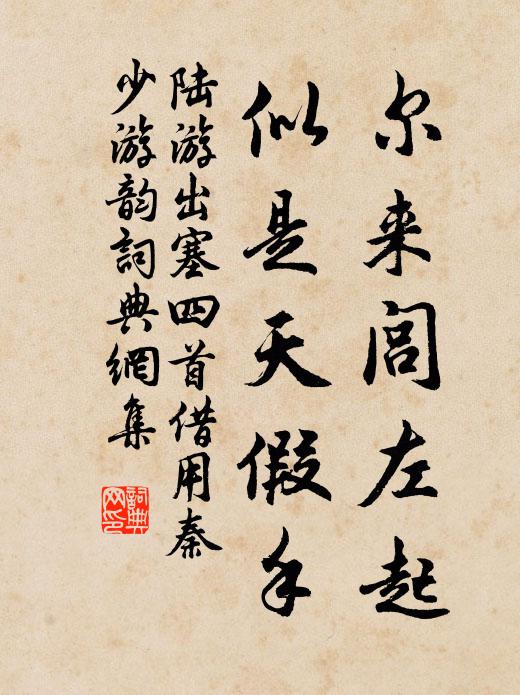 尔来闾左起
似是天假手
陆游出塞四首借用秦
少游韵詞典網集
詞典
网印